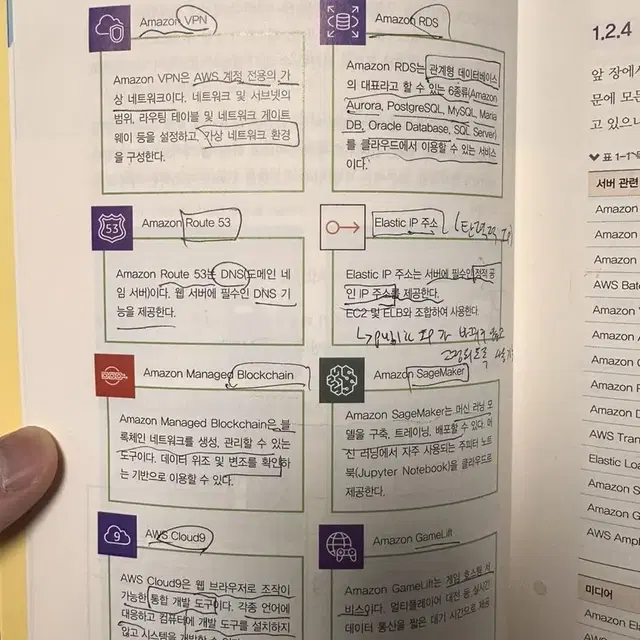 Amazon VPN
Amazon VPN은 AWS 계정 전용의 가
상 네트워크이다. 네트워크 및 서브넷의
범위, 라우팅 테이블 및 네트워크 게이트
웨이 등을 설정하고, 가상 네트워크 환경
을 구성한다.
Amazon RDS
Amazon RDS는 관계형 데이터베이스
의 대표라고 할 수 있는 6종류(Amazon
Aurora, PostgreSQL, MySQL, Maria
DB, Oracle Database, SQL Server)
를 클라우드에서 이용할 수 있는 서비스
이다.
53
Amazon Route 53
Amazon Route 53는 DNS(도메인 네
임 서버)이다. 웹 서버에 필수인 DNS 기
능을 제공한다.
Elastic IP 주소
Elastic IP 주소는 서버에 필수인 정적 공
인 IP 주소를 제공한다.
EC2 및 ELB와 조합하여 사용한다.
public IP가
Amazon Managed Blockchain
Amazon Managed Blockchain은 블
록체인 네트워크를 생성, 관리할 수 있는
도구이다. 데이터 위조 및 변조를 확인하
는 기반으로 이용할 수 있다.
Amazon SageMaker
Amazon SageMaker는 머신 러닝 모
델을 구축, 트레이닝, 배포할 수 있다. 머
신 러닝에서 자주 사용되는 주피터 노트
북(Jupyter Notebook)을 클라우드로
제공한다.
9
AWS Cloud9
AWS Cloud9은 웹 브라우저로 조작이
가능한 통합 개발 도구이다. 각종 언어에
대응하고 컴퓨터에 개발 도구를 설치하지
않고 시스템을 개발할 수
Amazon GameLift
Amazon GameLift는 게임 호스팅 서
비스이다. 멀티플레이어 대전 을 실시간
데이터 통신을 짧은 대기 시간으로 제공
1.2.4
앞 장에서
문에 모든
고 있으니
표 1-1
서버 관련
Amazon
Amazon
Amazon
AWS Bat
Amazon
Amazon
Amazon
Amazon
Amazon
AWS Tran
Elastic Lo
Amazon
Amazon
AWS Ampl
미디어
Amazon
Amazon